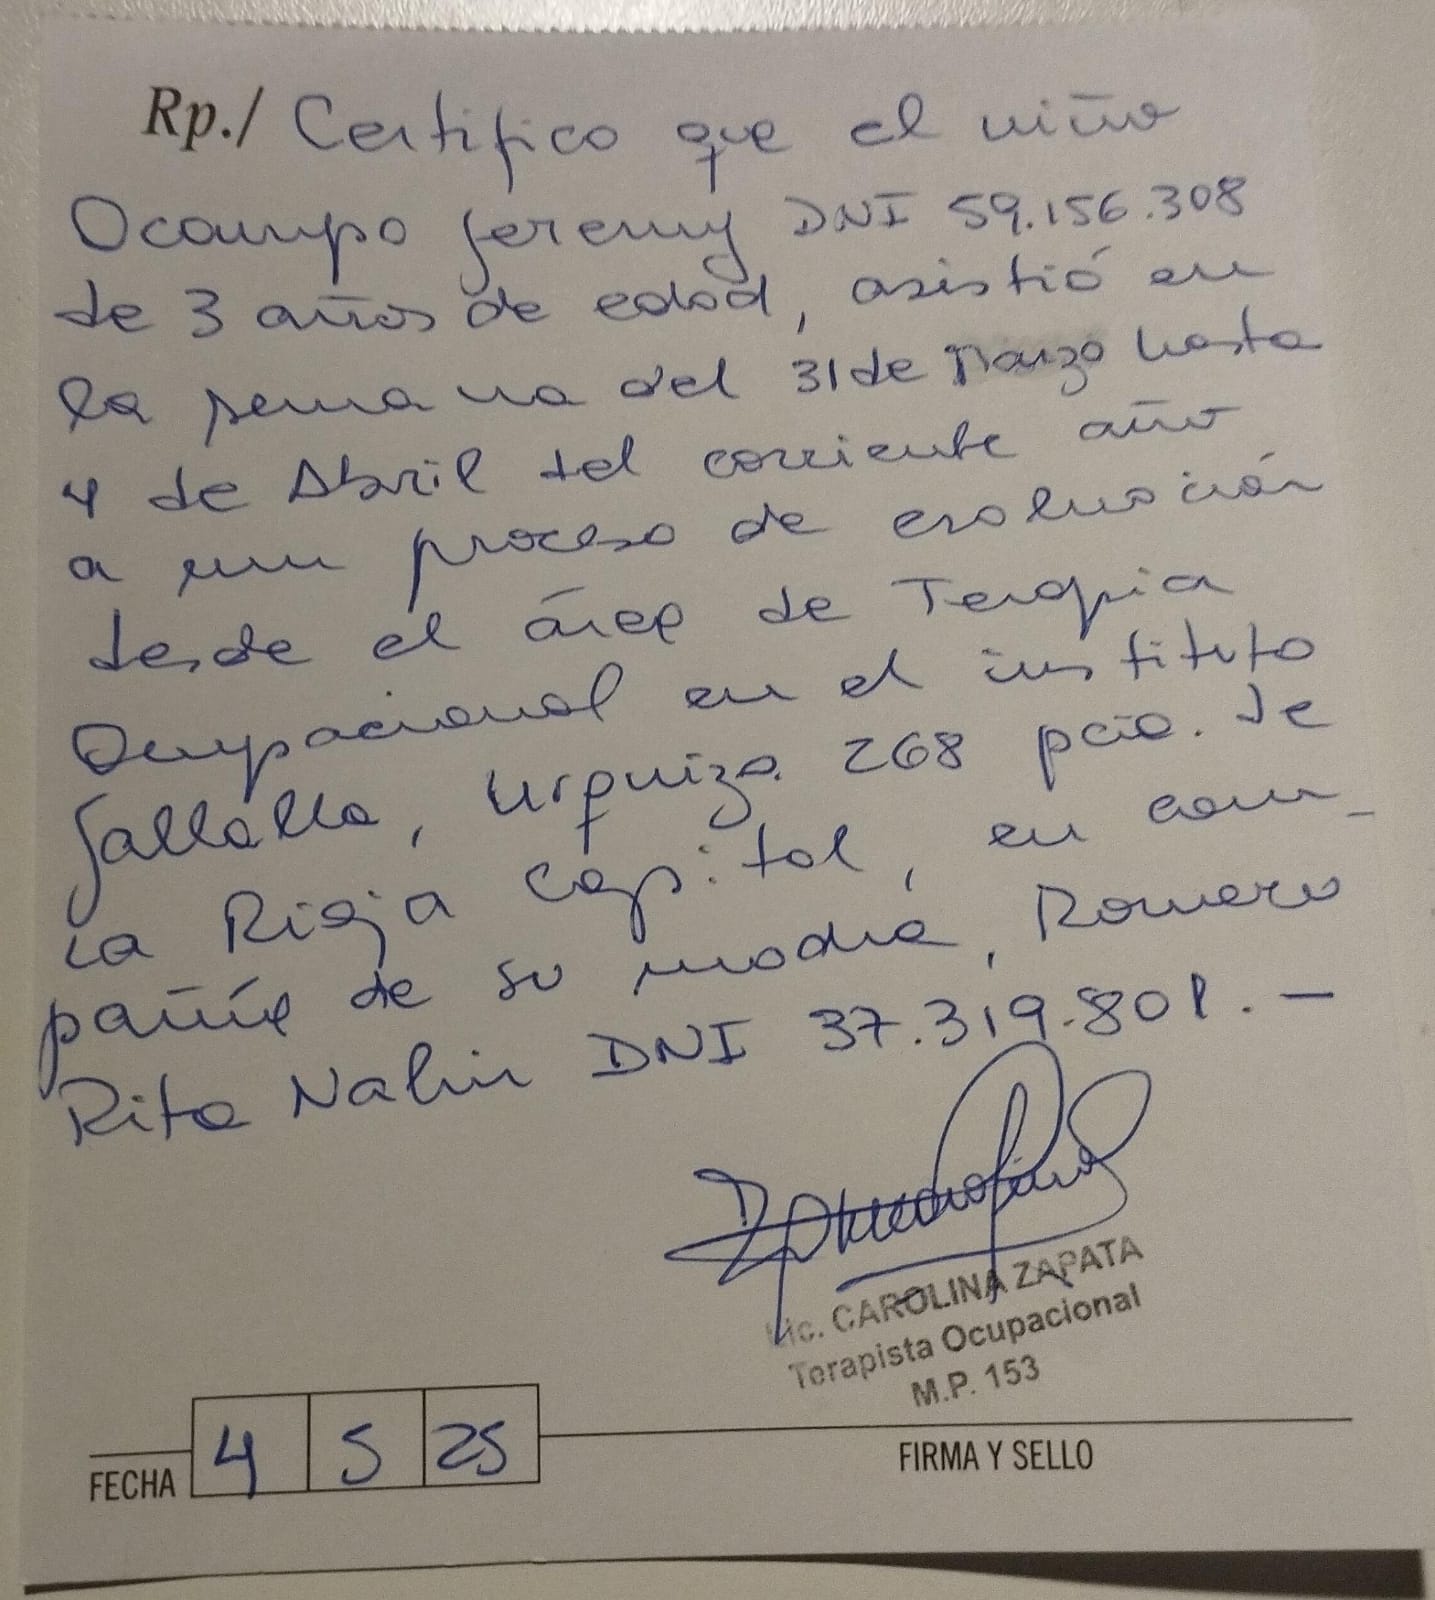 Rp./ Certifico que el niño
Ocampo Jeremy DNI 59.156.308
de 3 años de edad, asistió en
la semana del 31 de Marzo hasta
4 de Abril del corriente año
a un proceso de evaluación
desde el área de Terapia
Ocupacional en el instituto
Urquiza 268 pcia. de
La Rioja Capital, en com-
pañía de su madre, Romero
Rita Nahir DNI 37.319.801.-
Lic. CAROLINA ZAPATA
Terapista Ocupacional
M.P. 153
FECHA 4 5 25
FIRMA Y SELLO